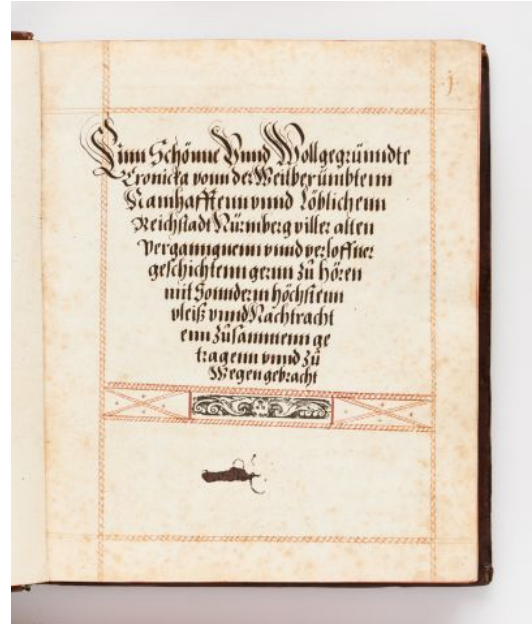 j.
Einn Schönne Vnnd Wollgegrünndte
Cronicka vonn der Weitberümbtenn
Namhafftenn vnnd Löblichenn
Reichstadt Nürmberg viller alten
verganngnenn vnnd verloffner
geschichtenn gernn zů hören
mit Sonndernn höchstenn
vleiß vnnd Nachtracht
enn zůsammenn ge
tragenn vnnd zů
Wegen gebracht